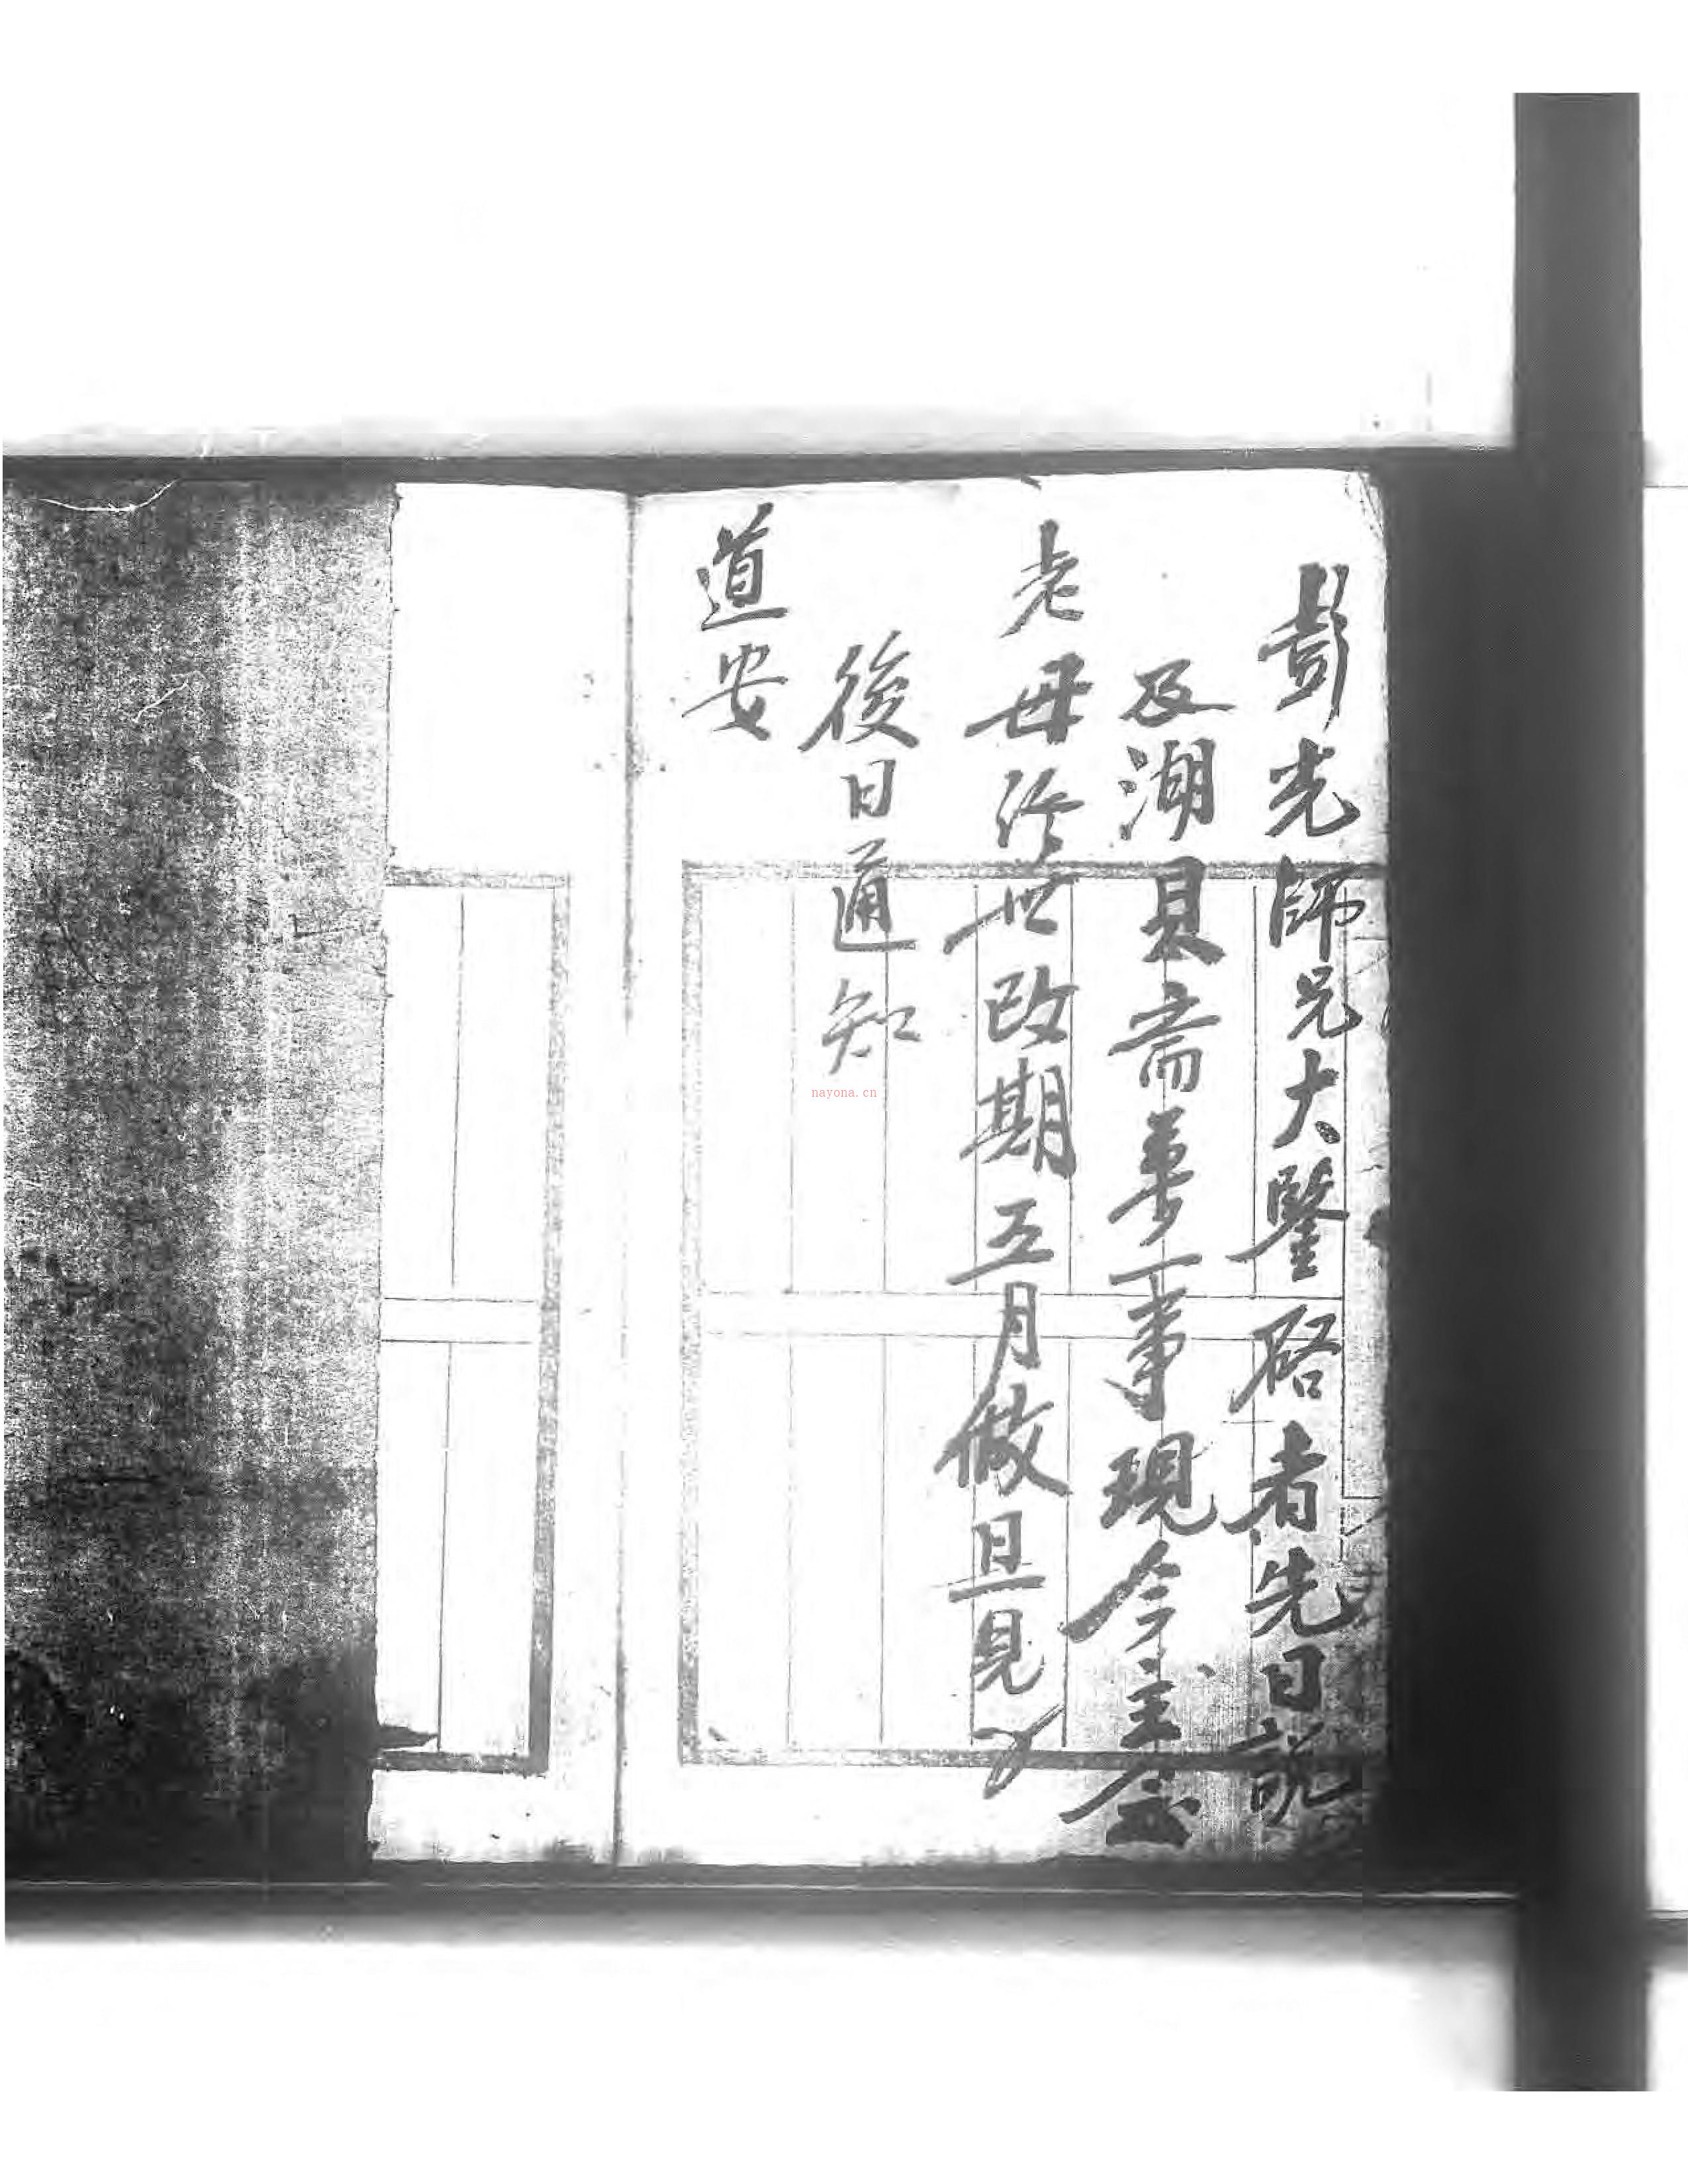 彭光師兄大鑒啓者先日說
及潮縣斋夢一事現今主
老母 世改期五月做旦見
後日通知
道安
nayona.cn